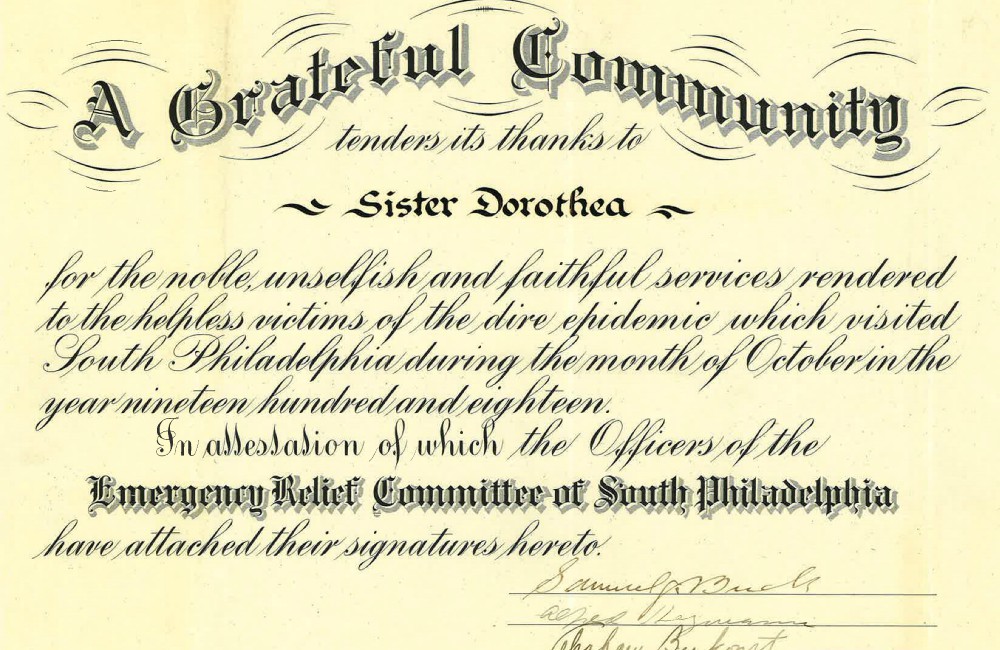 A Grateful Community
tenders its thanks to
~ Sister Dorothea ~
for the noble, unselfish and faithful services rendered
to the helpless victims of the dire epidemic which visited
South Philadelphia during the month of October in the
year nineteen hundred and eighteen.
In attestation of which the Officers of the
Emergency Relief Committee of South Philadelphia
have attached their signatures hereto.
Samuel